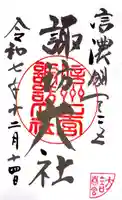 信濃國一之宮
諏訪大社
令和七年十二月十四日